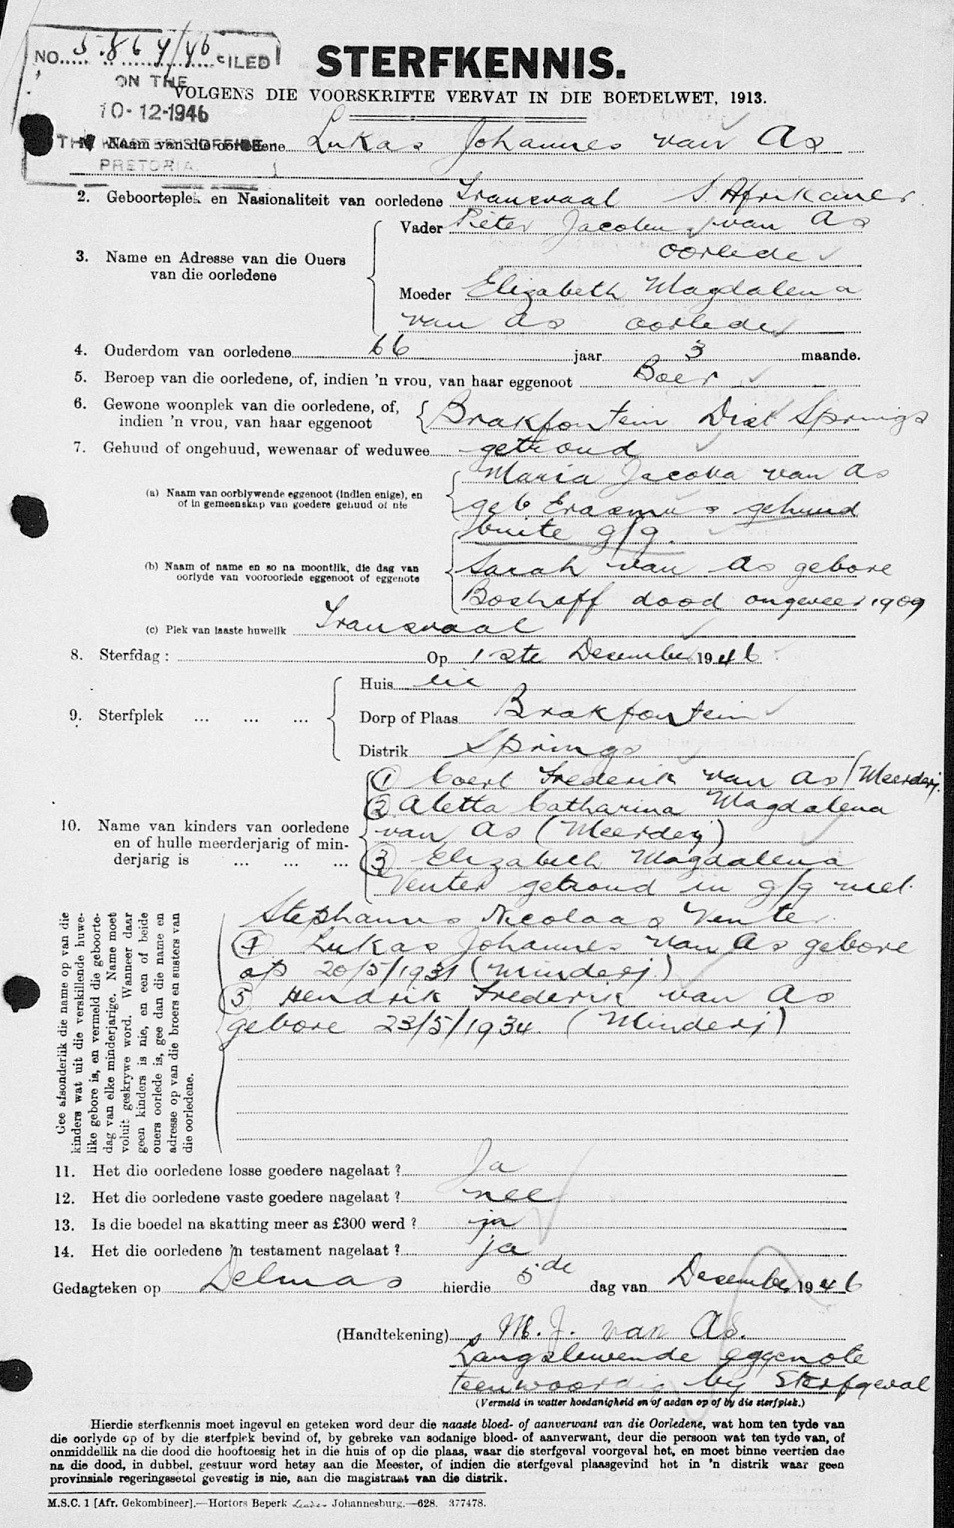 NO. 5864/46 FILED
ON THE
10-12-1946
PRETORIA
STERFKENNIS.
VOLGENS DIE VOORSKRIFTE VERVAT IN DIE BOEDELWET, 1913.
Naam van die oorledene Lukas Johannes van As
2. Geboorteplek en Nasionaliteit van oorledene Transvaal S Afrikaner
3. Name en Adresse van die Ouers van die oorledene
Vader Pieter Jacobus van As
oorlede
Moeder Elizabeth Magdalena
van As oorlede
4. Ouderdom van oorledene 66 jaar 3 maande.
5. Beroep van die oorledene, of, indien 'n vrou, van haar eggenoot Boer
6. Gewone woonplek van die oorledene, of, indien 'n vrou, van haar eggenoot Brakfontein Dist Springs
7. Gehuud of ongehuud, wewenaar of weduwee getroud
(a) Naam van oorblywende eggenoot (indien enige), en of in gemeenskap van goedere gehuud of nie
Maria Jacoba van As
geb Erasmus gehuud
buite g/g.
(b) Naam of name en so na moontlik, die dag van oorlyde van vooroorlede eggenoot of eggenote
Sarah van As gebore
Boshoff dood ongeveer 1909
(c) Plek van laaste huwelik Transvaal
8. Sterfdag : Op 1ste Desember 1946
9. Sterfplek ... ... ...
Huis
Dorp of Plaas Brakfontein
Distrik Springs
10. Name van kinders van oorledene en of hulle meerderjarig of minderjarig is ... ... ...
(1) Coert Frederik van As (Meerderj.
(2) Aletta Catharina Magdalena
van As (Meerderj)
(3) Elizabeth Magdalena
Venter getroud in g/g met
Stephanus Nicolaas Venter
(4) Lukas Johannes van As gebore
op 20/5/1931 (Minderj)
(5) Hendrik Frederik van As
gebore 23/5/1934 (Minderj)
Gee afsonderlik die name op van die
kinders wat uit die verskillende huwe-
like gebore is, en vermeld die geboorte-
dag van elke minderjarige. Name moet
voluit geskrywe word. Wanneer daar
geen kinders is nie, en een of beide
ouers oorlede is, gee dan die name en
adresse op van die broers en susters van
die oorledene.
11. Het die oorledene losse goedere nagelaat ? Ja
12. Het die oorledene vaste goedere nagelaat ? nee
13. Is die boedel na skatting meer as £300 werd ? ja
14. Het die oorledene 'n testament nagelaat ? ja
Gedagteken op Delmas hierdie 5de dag van Desember 1946
(Handtekening) M. J. van As.
Langslewende eggenote
teenwoordig by Sterfgeval
(Vermeld in watter hoedanigheid en of aedan op of by die sterfplek.)
Hierdie sterfkennis moet ingevul en geteken word deur die naaste bloed- of aanverwant van die Oorledene, wat hom ten tyde van
die oorlyde op of by die sterfplek bevind of, by gebreke van sodanige bloed- of aanverwant, deur die persoon wat ten tyde van, of
onmiddellik na die dood die hooftoesig het in die huis of op die plaas, waar die sterfgeval voorgeval het, en moet binne veertien dae
na die dood, in dubbel, gestuur word hetsy aan die Meester, of indien die sterfgeval plaasgevind het in 'n distrik waar geen
provinsiale regeringssetel gevestig is nie, aan die magistraat van die distrik.
M.S.C. 1 [Afr. Gekombineer].—Hortors Beperk Johannesburg.—628. 377478.